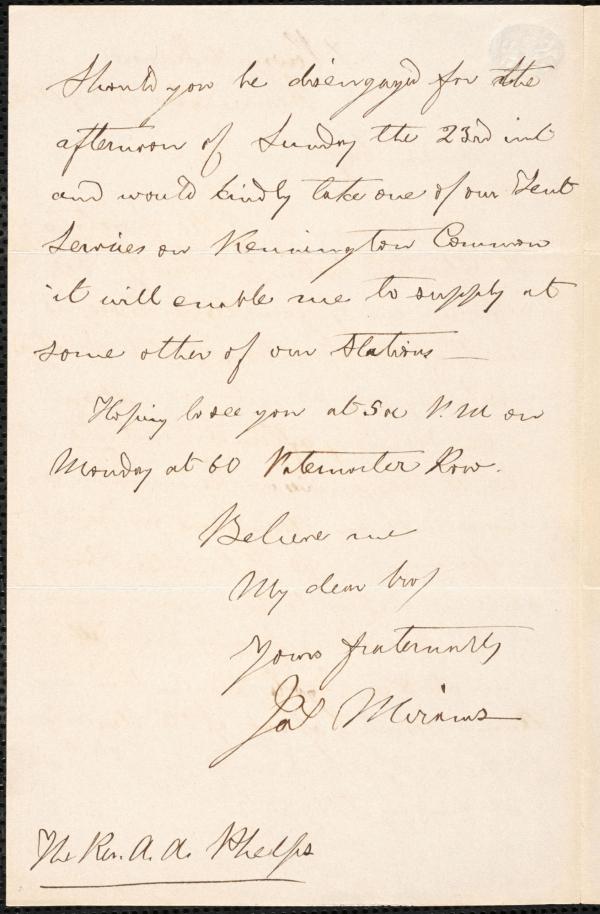 Should you be disengaged for the
afternoon of Sunday the 23rd inst
and would kindly take one of our Tent
Services on Kennington Common
it will enable me to supply at
some other of our Stations —
Hoping to see you at 5 P.M on
Monday at 60 Paternoster Row.
Believe me
My dear bro/
Yours fraternally
Jas Mirams
The Rev. A. A. Phelps